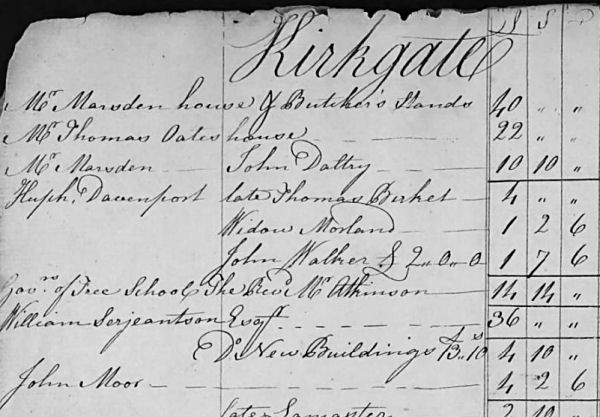 Kirkgate £ S D
Mr Marsden house & Butcher's Stands 40 " "
Mr Thomas Oates house 22 " "
Mr Marsden John Daltry 10 10 "
Huph. Davenport late Thomas Birket 4 " "
Widow Morland 1 2 6
John Walker £ 2,,0,,0 1 7 6
Govrs. of Free School The Revd. Mr Atkinson 14 14 "
William Serjeantson Esqr. 36 " "
Do. New Buildings 13,,10 4 10 "
John Moor 4 2 6
late 2 10 "